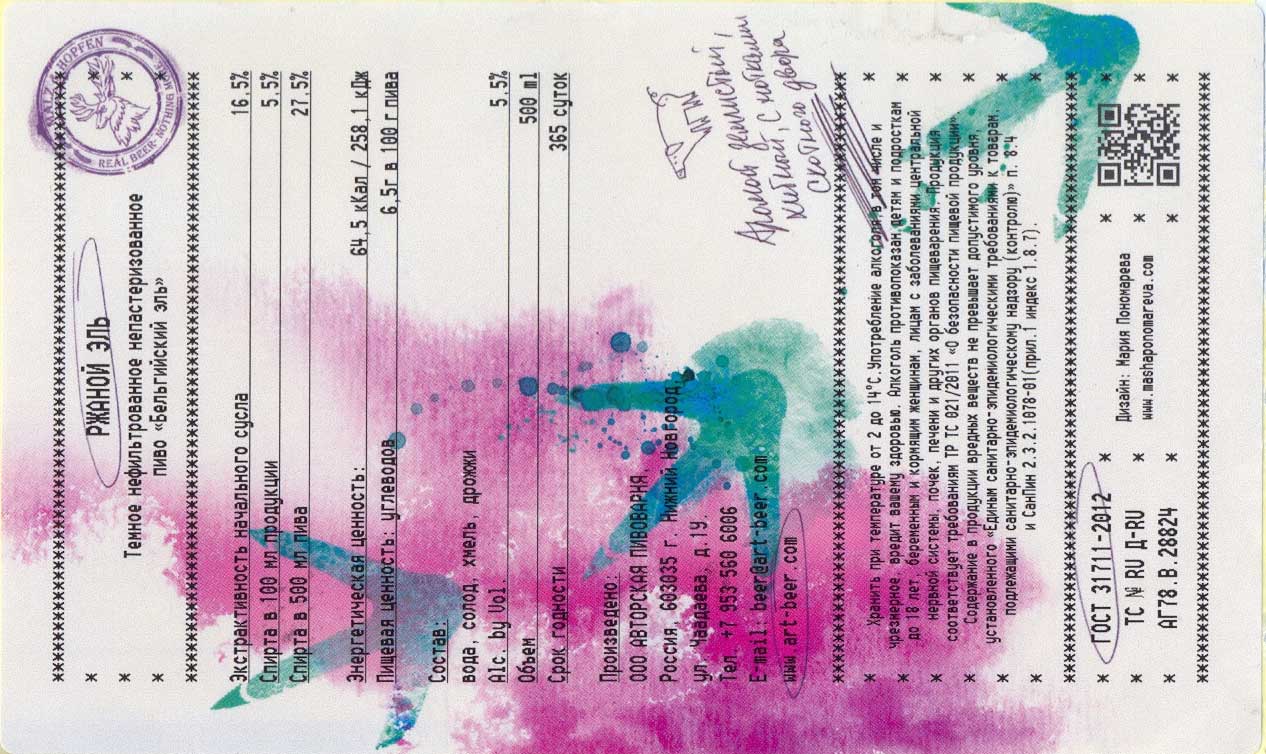 MALZ & HOPFEN
REAL BEER - NOTHING
***********************************************************
* РЖАНОЙ ЭЛЬ *
* Темное нефильтрованное непастеризованное *
* пиво «Бельгийский эль» *
***********************************************************
Экстрактивность начального сусла 16.5%
Спирта в 100 мл продукции 5.5%
Спирта в 500 мл пива 27.5%
Энергетическая ценность: 64,5 кКал / 258,1 кДж
Пищевая ценность: углеводов 6,5г в 100 г пива
Состав:
вода, солод, хмель, дрожжи
Alc. by Vol. 5.5%
Объем 500 ml
Срок годности 365 суток
Произведено:
ООО АВТОРСКАЯ ПИВОВАРНЯ
Россия, 603035 г. Нижний Новгород,
ул. Чаадаева, д.1У.
Тел. +7 953 560 6006
E-mail: beer@art-beer.com
www.art-beer.com
Аромат душистый,
хлебный, с нотками
скотного двора
***********************************************************
* Хранить при температуре от 2 до 14°С.Употребление алкоголя в том числе и *
* чрезмерное, вредит вашему здоровью. Алкоголь противопоказан детям и подросткам *
* до 18 лет, беременным и кормящим женщинам, лицам с заболеваниями центральной *
* нервной системы, почек, печени и других органов пищеварения. Продукция *
соответствует требованиям ТР ТС 021/2011 «О безопасности пищевой продукции»
* Содержание в продукции вредных веществ не превышает допустимого уровня, *
установленного «Единым санитарно-эпидемиологическими требованиями к товарам,
* подлежащими санитарно-эпидемиологическому надзору (контролю)» п. 8.4 *
* и СанПин 2.3.2.1078-01(прил.1 индекс 1.8.7). *
***********************************************************
* ГОСТ 31711-2012 * *
* ТС № RU Д-RU * Дизайн: Мария Пономарева *
* АГ78.В.28824 * www.mashaponomareva.com *
***********************************************************